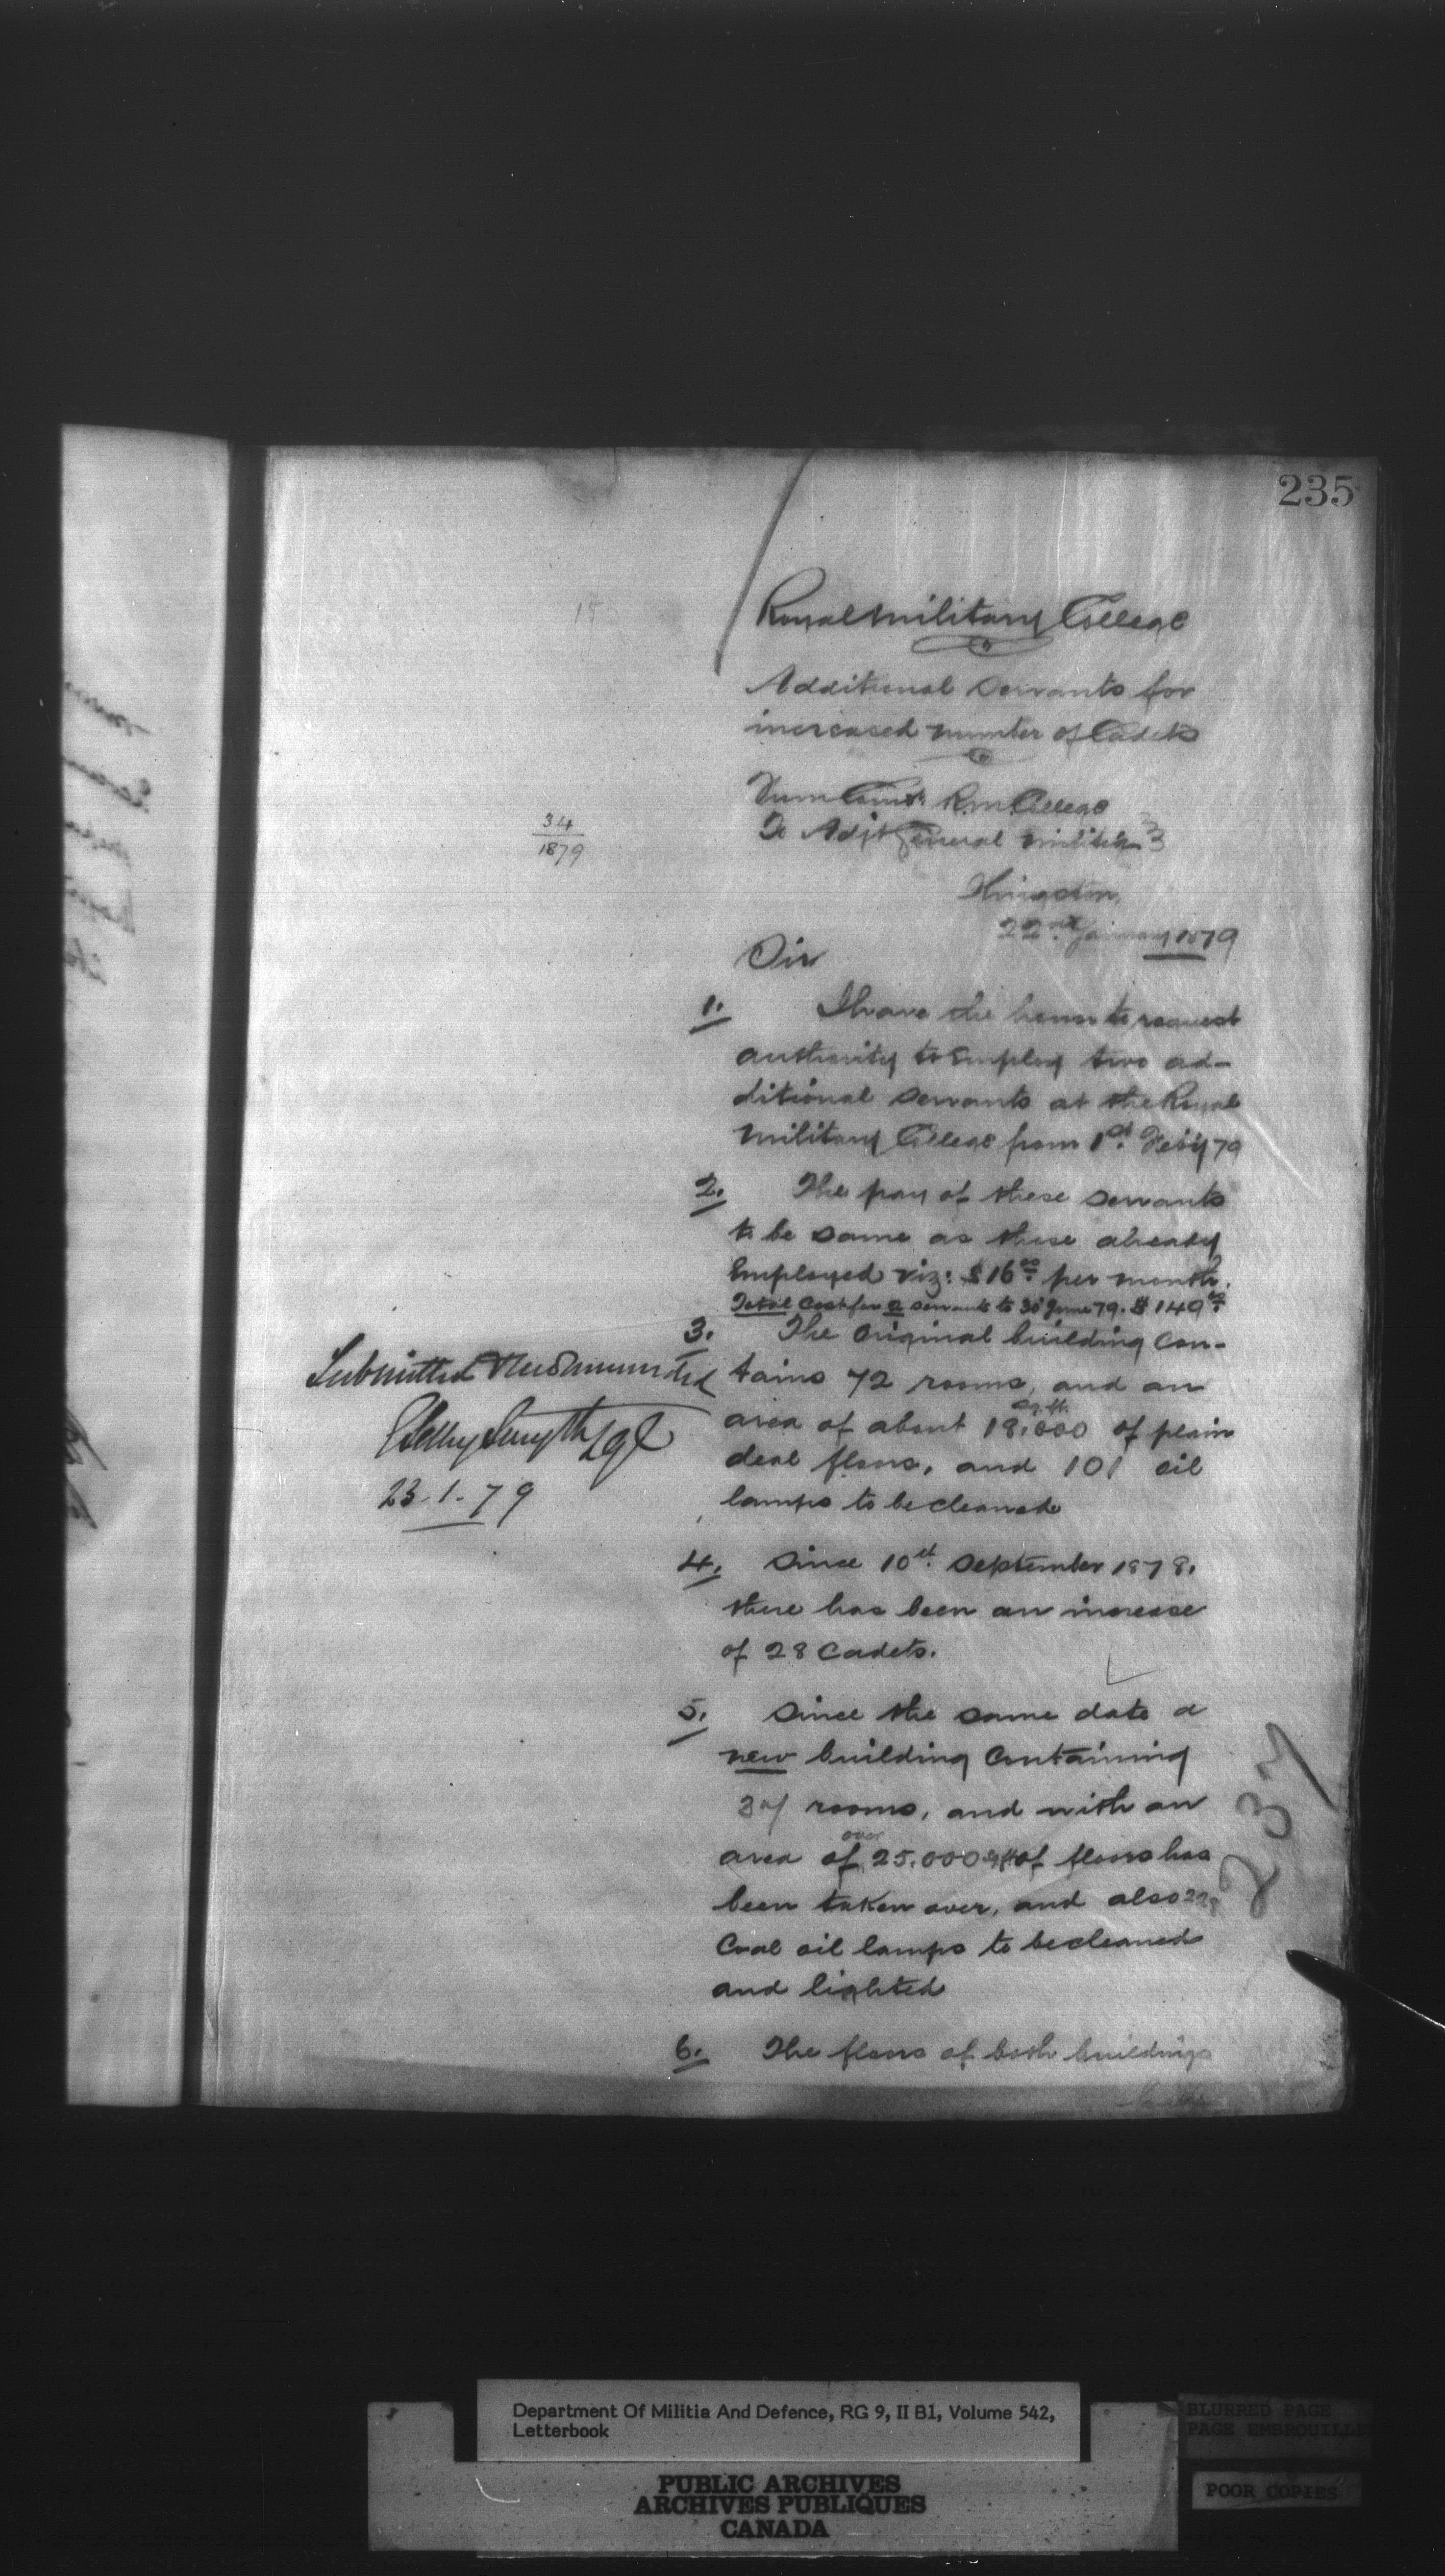 235
Royal Military College
Additional Servants for
increased number of Cadets
From Comt. R.M. College
To Adjt General Militia
34
1879
Kingston
22nd January 1879
Sir
1. I have the honor to request
authority to Employ two ad-
ditional servants at the Royal
Military College from 1st. Feby 79
2. The pay of these servants
to be same as those already
Employed viz: $16.00 per month.
Total Cost for 2 servants to 30 June 79. $
3. The Original building con-
tains 72 rooms, and an
area of about 18,000 sq. ft. of plain
deal floors, and 101 oil
lamps to be cleaned
Submitted & recommended
Selby Smyth
23-1-79
4. Since 10th September 1878.
there has been an increase
of 28 Cadets.
5. Since the same date a
new building Containing
rooms, and with an
area of over 25,000 sq ft of floors has
been taken over, and also
Coal oil lamps to be cleaned
and lighted
237
6. The floors of both buildings
Department Of Militia And Defence, RG 9, II B1, Volume 542,
Letterbook
BLURRED PAGE
PAGE EMBROUILLE
PUBLIC ARCHIVES
ARCHIVES PUBLIQUES
CANADA
POOR COPIES